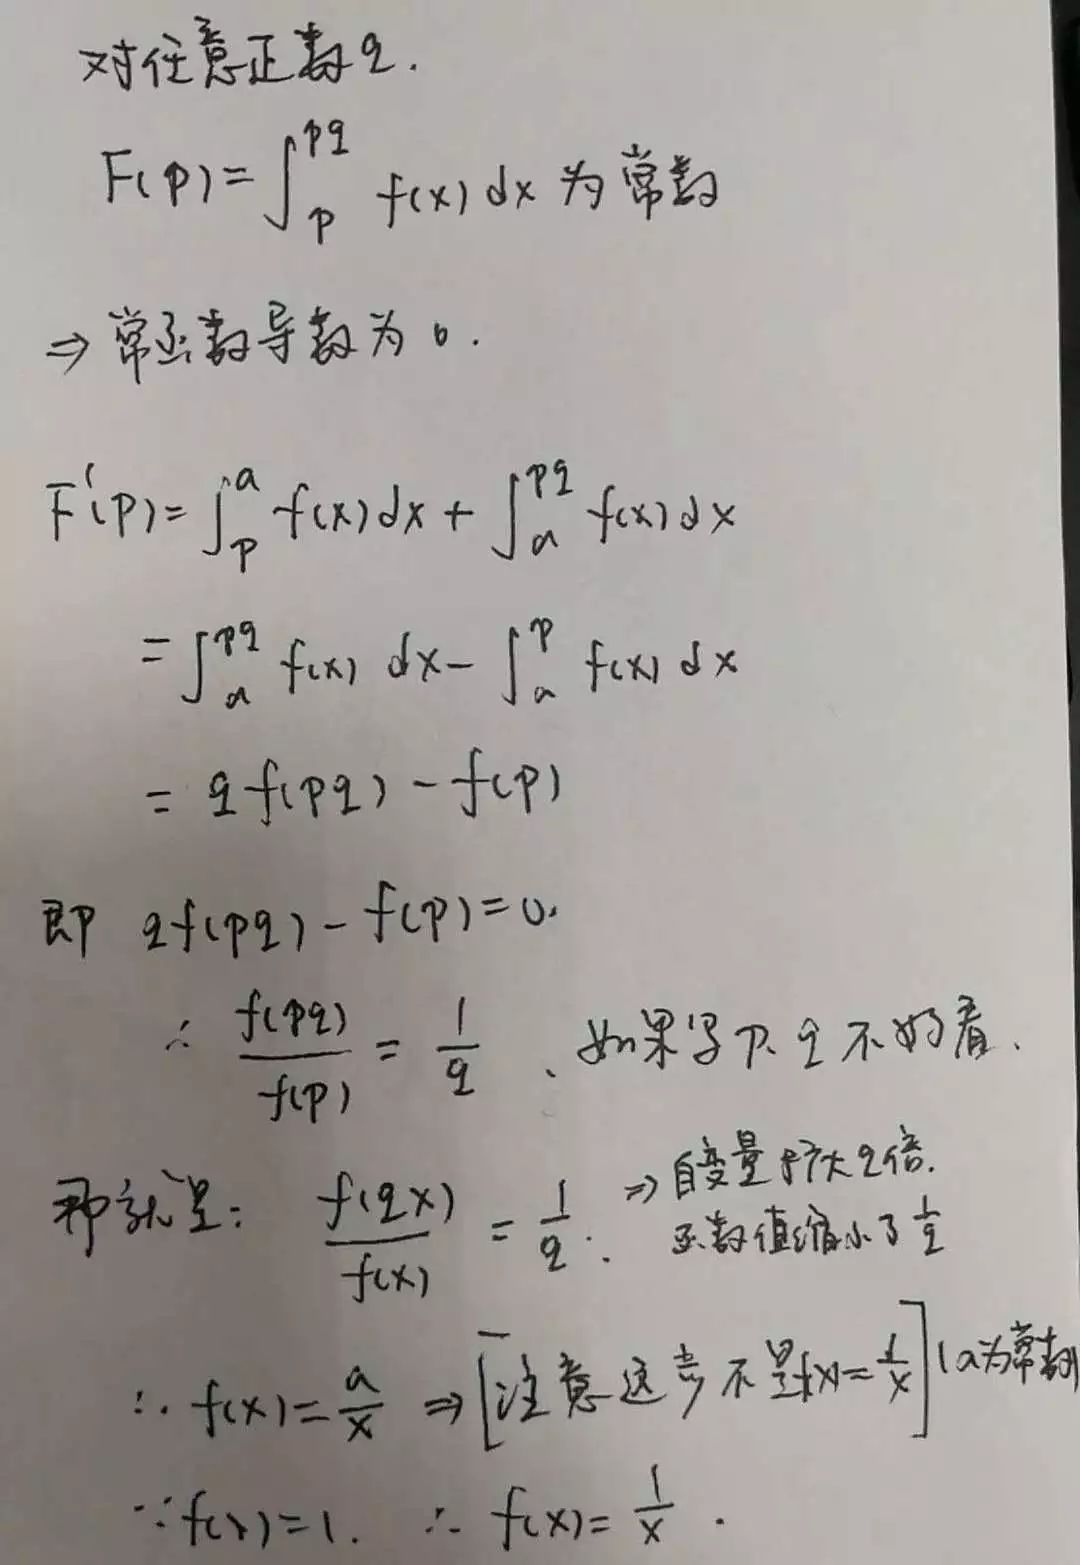 对任意正数q.
F(p)=∫_p^{pq} f(x)dx 为常数
⇒常函数导数为0.
F'(p)=∫_p^a f(x)dx+∫_a^{pq} f(x)dx
=∫_a^{pq} f(x) dx-∫_a^p f(x) dx
= q f(pq) - f(p)
即 qf(pq)-f(p)=0.
∴ f(pq)/f(p) = 1/q 、如果写下 q 不好看.
那就是: f(qx)/f(x) = 1/q . ⇒自变量扩大q倍.
函数值缩小了1/q
∴ f(x)=a/x ⇒[注意这步不是f(x)=1/x](a为常数
∵f(1)=1. ∴ f(x)=1/x .